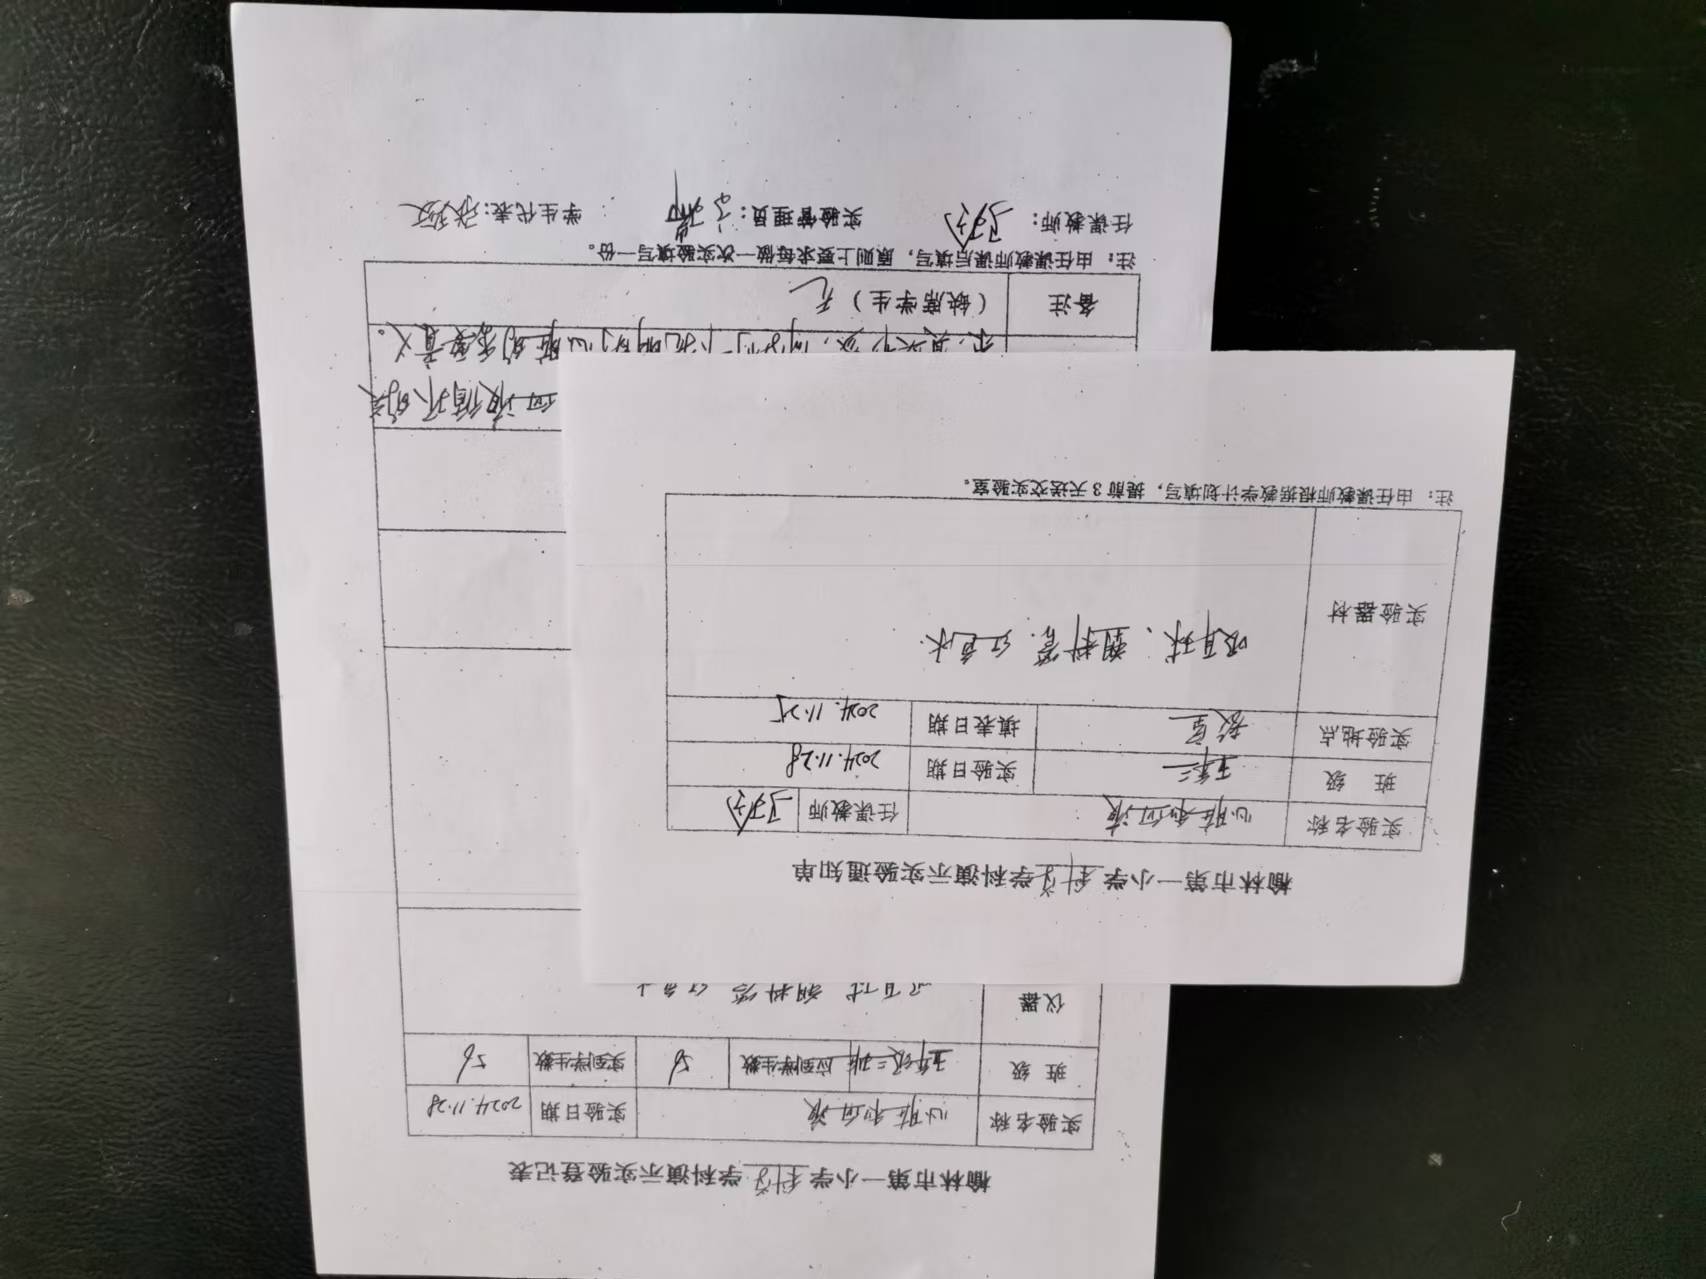 榆林市第一小学科学学科演示实验通知单
实验名称 心脏和血液 任课教师
班 级 五年二 实验日期 2024.11.28
实验地点 教室 填表日期 2024.11.25
实验器材 吸耳球、塑料管、红色水.
注：由任课教师根据教学计划填写，提前3天送交实验室。
榆林市第一小学科学学科演示实验登记表
实验名称 心脏和血液 实验日期 2024.11.28
班 级 五年级二班 应到学生数 56 实到学生数 56
仪器 吸耳球 塑料管 红色水
血液循环的关
心脏的重要意义。
备注 （缺席学生）无
注：由任课教师课后填写，原则上要求每做一次实验填写一份。
任课教师： 实验管理员： 学生代表：